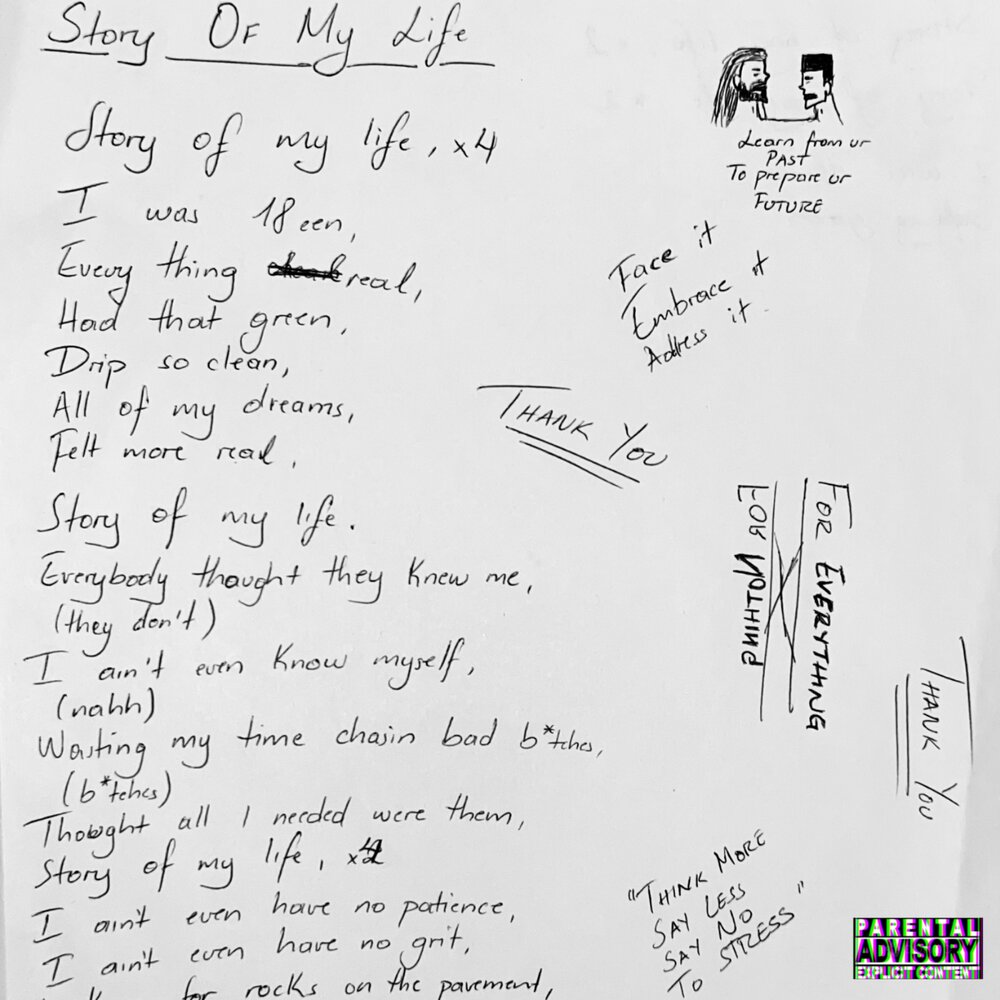 Story Of My Life
Story of my life, x4
I was 18een,
Every thing real,
Had that green,
Drip so clean,
All of my dreams,
Felt more real.
Story of my life.
Everybody thought they knew me,
(they don't)
I ain't even know myself,
(nahh)
Wasting my time chasin bad b*tches,
(b*tches)
Thought all I needed were them,
Story of my life,
I ain't even have no patience,
I ain't even have no grit,
for rocks on the pavement,
Learn from ur
PAST
To prepare ur
FUTURE
Face it
Embrace it
Address it
THANK YOU
FOR EVERYTHING
FOR NOTHING
THANK YOU
"THINK MORE
SAY LESS
SAY NO
TO STRESS"
PARENTAL
ADVISORY
EXPLICIT CONTENT